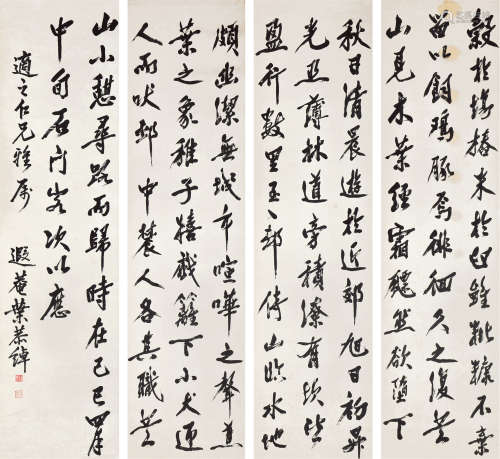 穀於場樁米於臼雖秕糠不棄
留以飼鷄豚焉徘徊久之復登
山見木葉經霜飄然欲墮下
秋日清晨遊於近郊旭日初昇
光照薄林道旁積潦有坎皆
盈行數里至一邨倚山臨水地
頗幽潔無城市喧嘩之聲蕉
葉之象稚子嬉戲籬下小犬迎
人而吠邨中農人各其職登
山小憩尋路而歸時在己巳四月
中旬石门客次以應
適之仁兄雅屬
遐菴葉恭綽